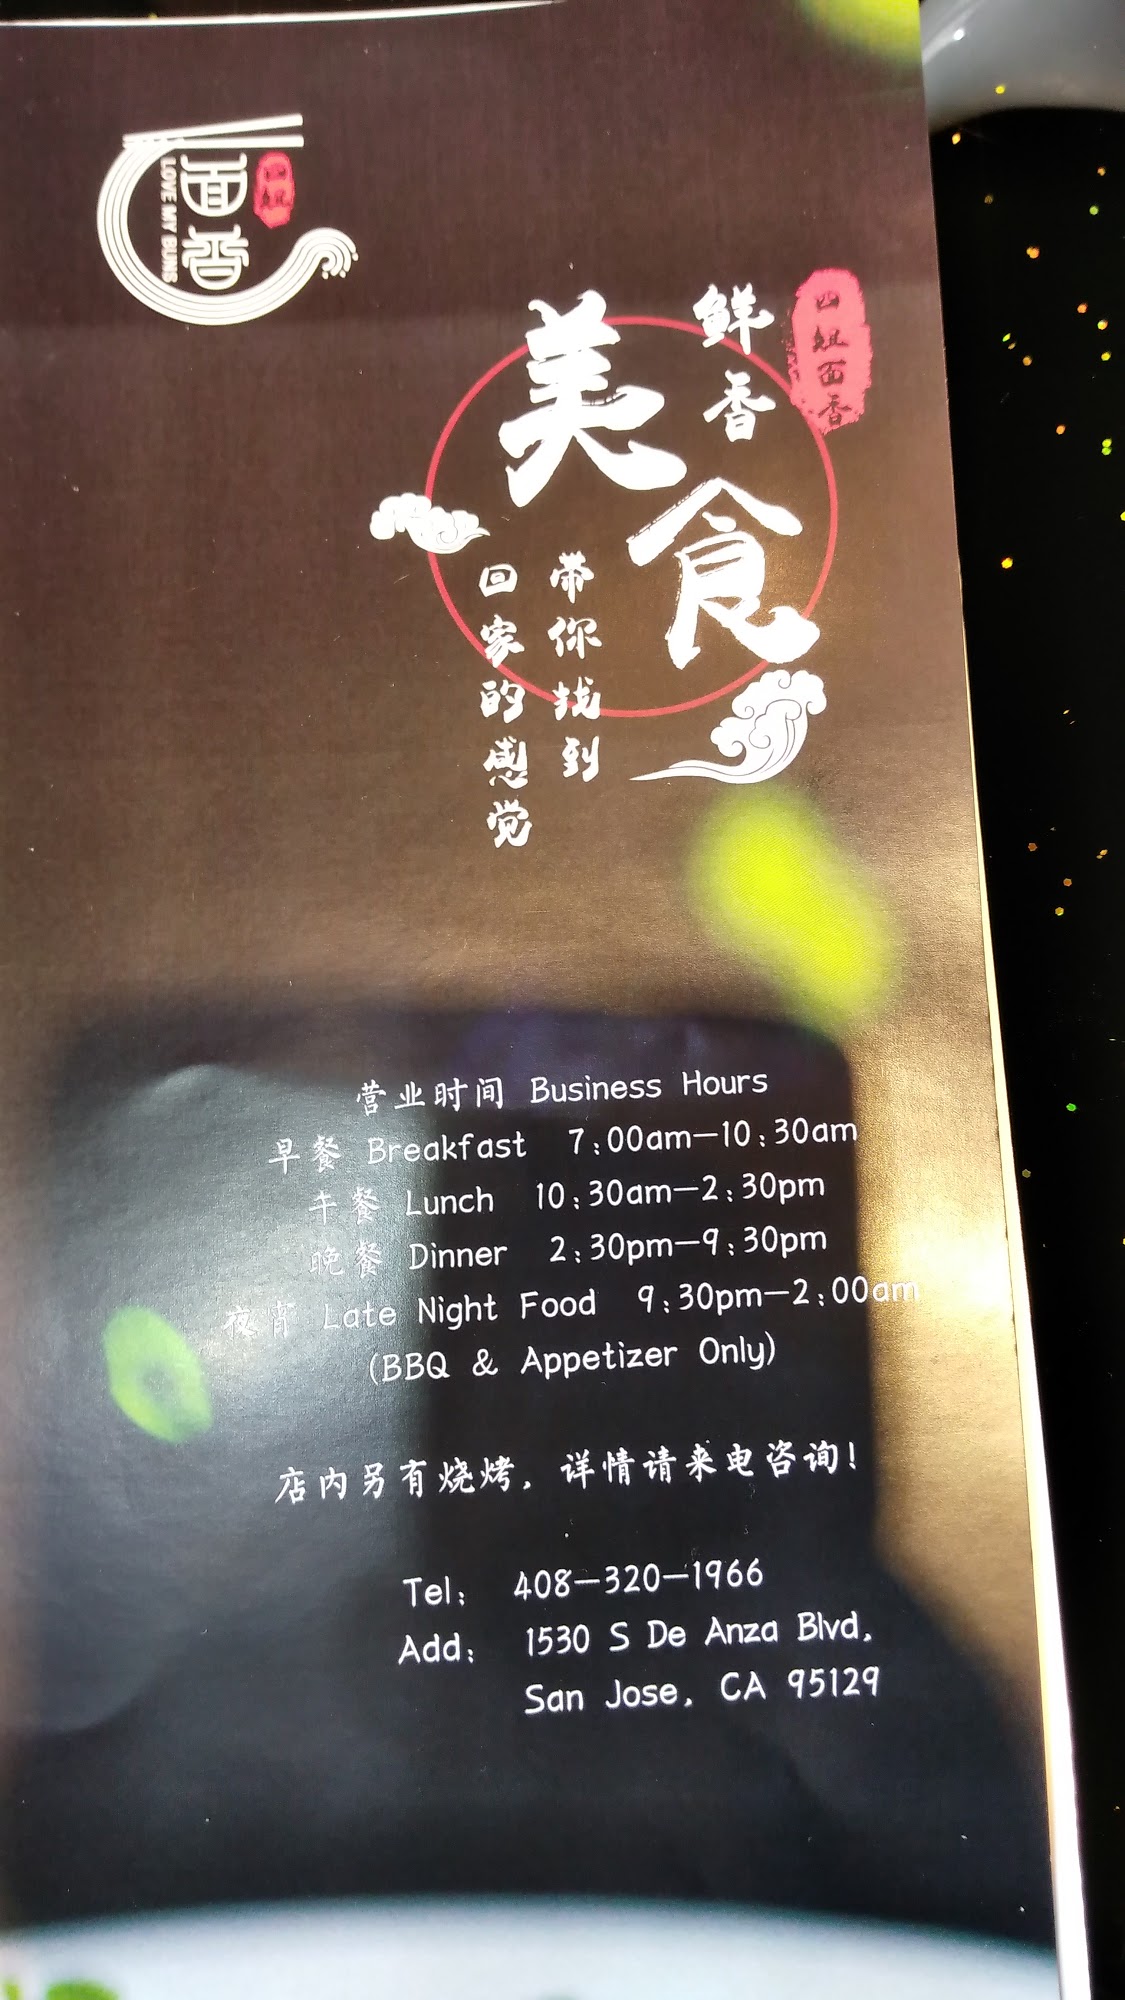 四姐
面香
LOVE MY BUNS
四姐面香
鲜香
美食
带你找到
回家的感觉
营业时间 Business Hours
早餐 Breakfast 7:00am—10:30am
午餐 Lunch 10:30am—2:30pm
晚餐 Dinner 2:30pm—9:30pm
夜宵 Late Night Food 9:30pm—2:00am
(BBQ & Appetizer Only)
店内另有烧烤，详情请来电咨询！
Tel: 408—320—1966
Add: 1530 S De Anza Blvd,
San Jose, CA 95129